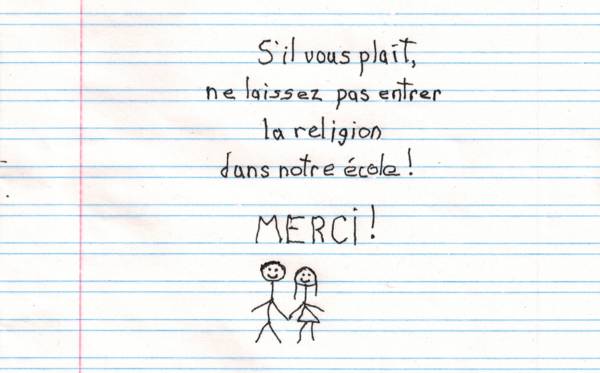 S'il vous plaît,
ne laissez pas entrer
la religion
dans notre école!
MERCi!